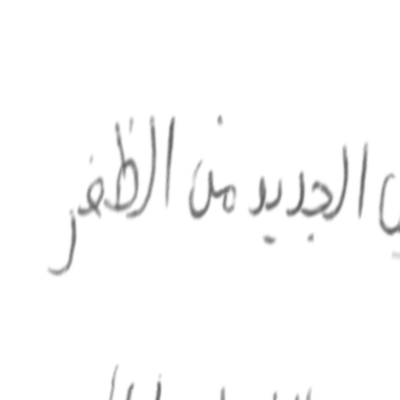 الجديد من الظفر